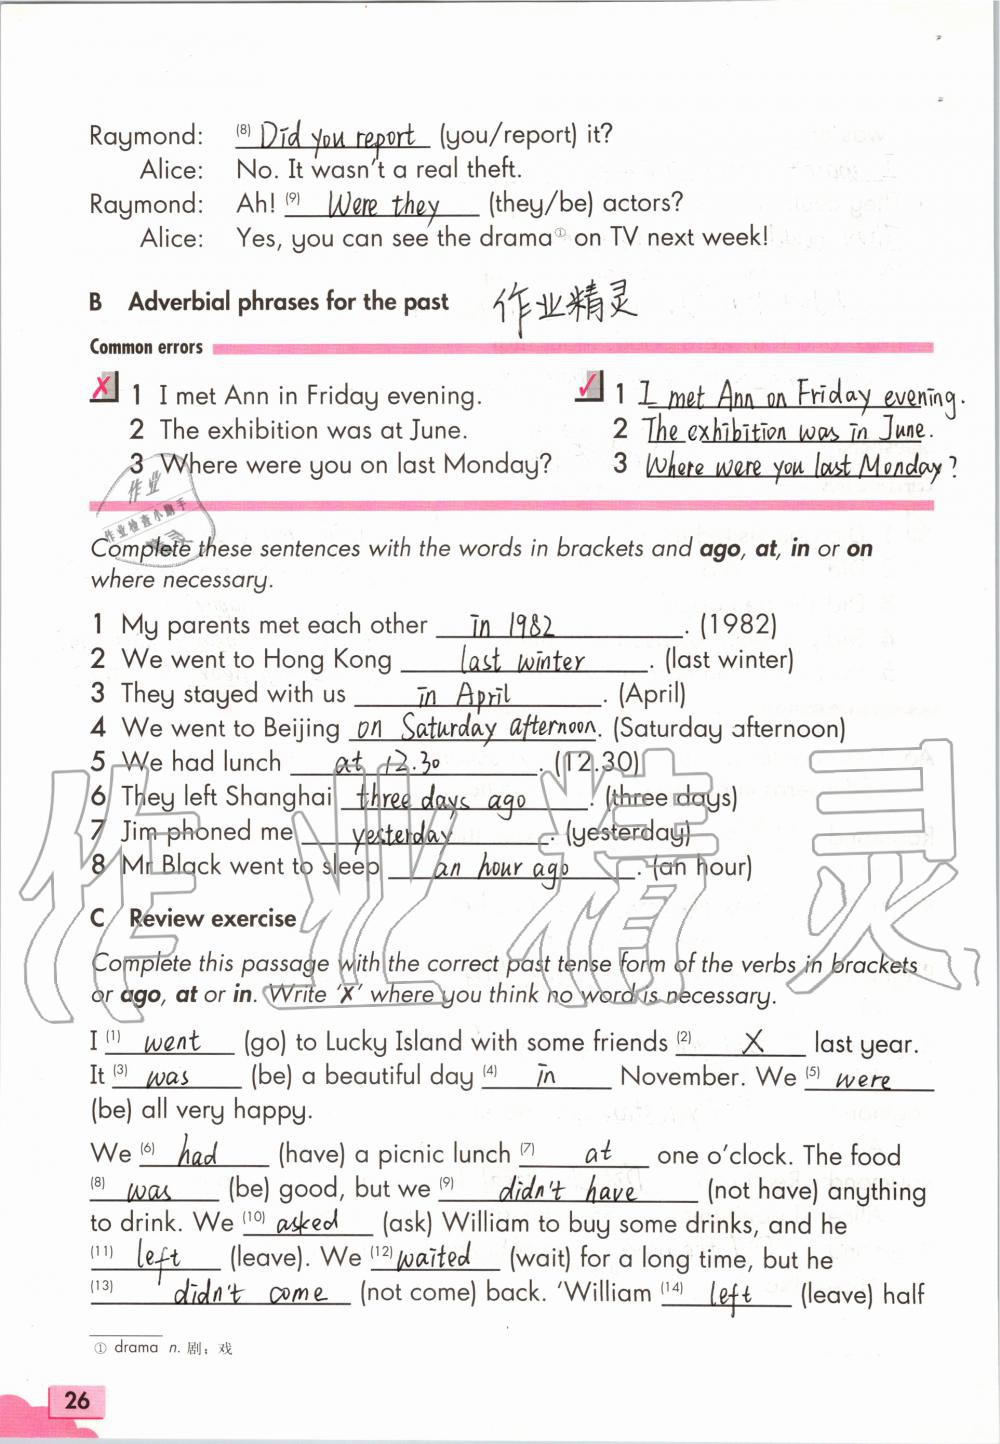 Raymond: (8) Did you report (you/report) it?
Alice: No. It wasn't a real theft.
Raymond: Ah! (9) Were they (they/be) actors?
Alice: Yes, you can see the drama① on TV next week!
B Adverbial phrases for the past 作业精灵
Common errors
✗ 1 I met Ann in Friday evening. ✓ 1 I met Ann on Friday evening.
2 The exhibition was at June. 2 The exhibition was in June.
3 Where were you on last Monday? 3 Where were you last Monday?
作业
作业检查小助手
Complete these sentences with the words in brackets and ago, at, in or on
where necessary.
1 My parents met each other in 1982. (1982)
2 We went to Hong Kong last winter. (last winter)
3 They stayed with us in April. (April)
4 We went to Beijing on Saturday afternoon. (Saturday afternoon)
5 We had lunch at 12.30. (12.30)
6 They left Shanghai three days ago. (three days)
7 Jim phoned me yesterday. (yesterday)
8 Mr Black went to sleep an hour ago. (an hour)
作业精灵
C Review exercise
Complete this passage with the correct past tense form of the verbs in brackets
or ago, at or in. Write 'X' where you think no word is necessary.
I (1) went (go) to Lucky Island with some friends (2) X last year.
It (3) was (be) a beautiful day (4) in November. We (5) were
(be) all very happy.
We (6) had (have) a picnic lunch (7) at one o'clock. The food
(8) was (be) good, but we (9) didn't have (not have) anything
to drink. We (10) asked (ask) William to buy some drinks, and he
(11) left (leave). We (12) waited (wait) for a long time, but he
(13) didn't come (not come) back. 'William (14) left (leave) half
① drama n. 剧；戏
26